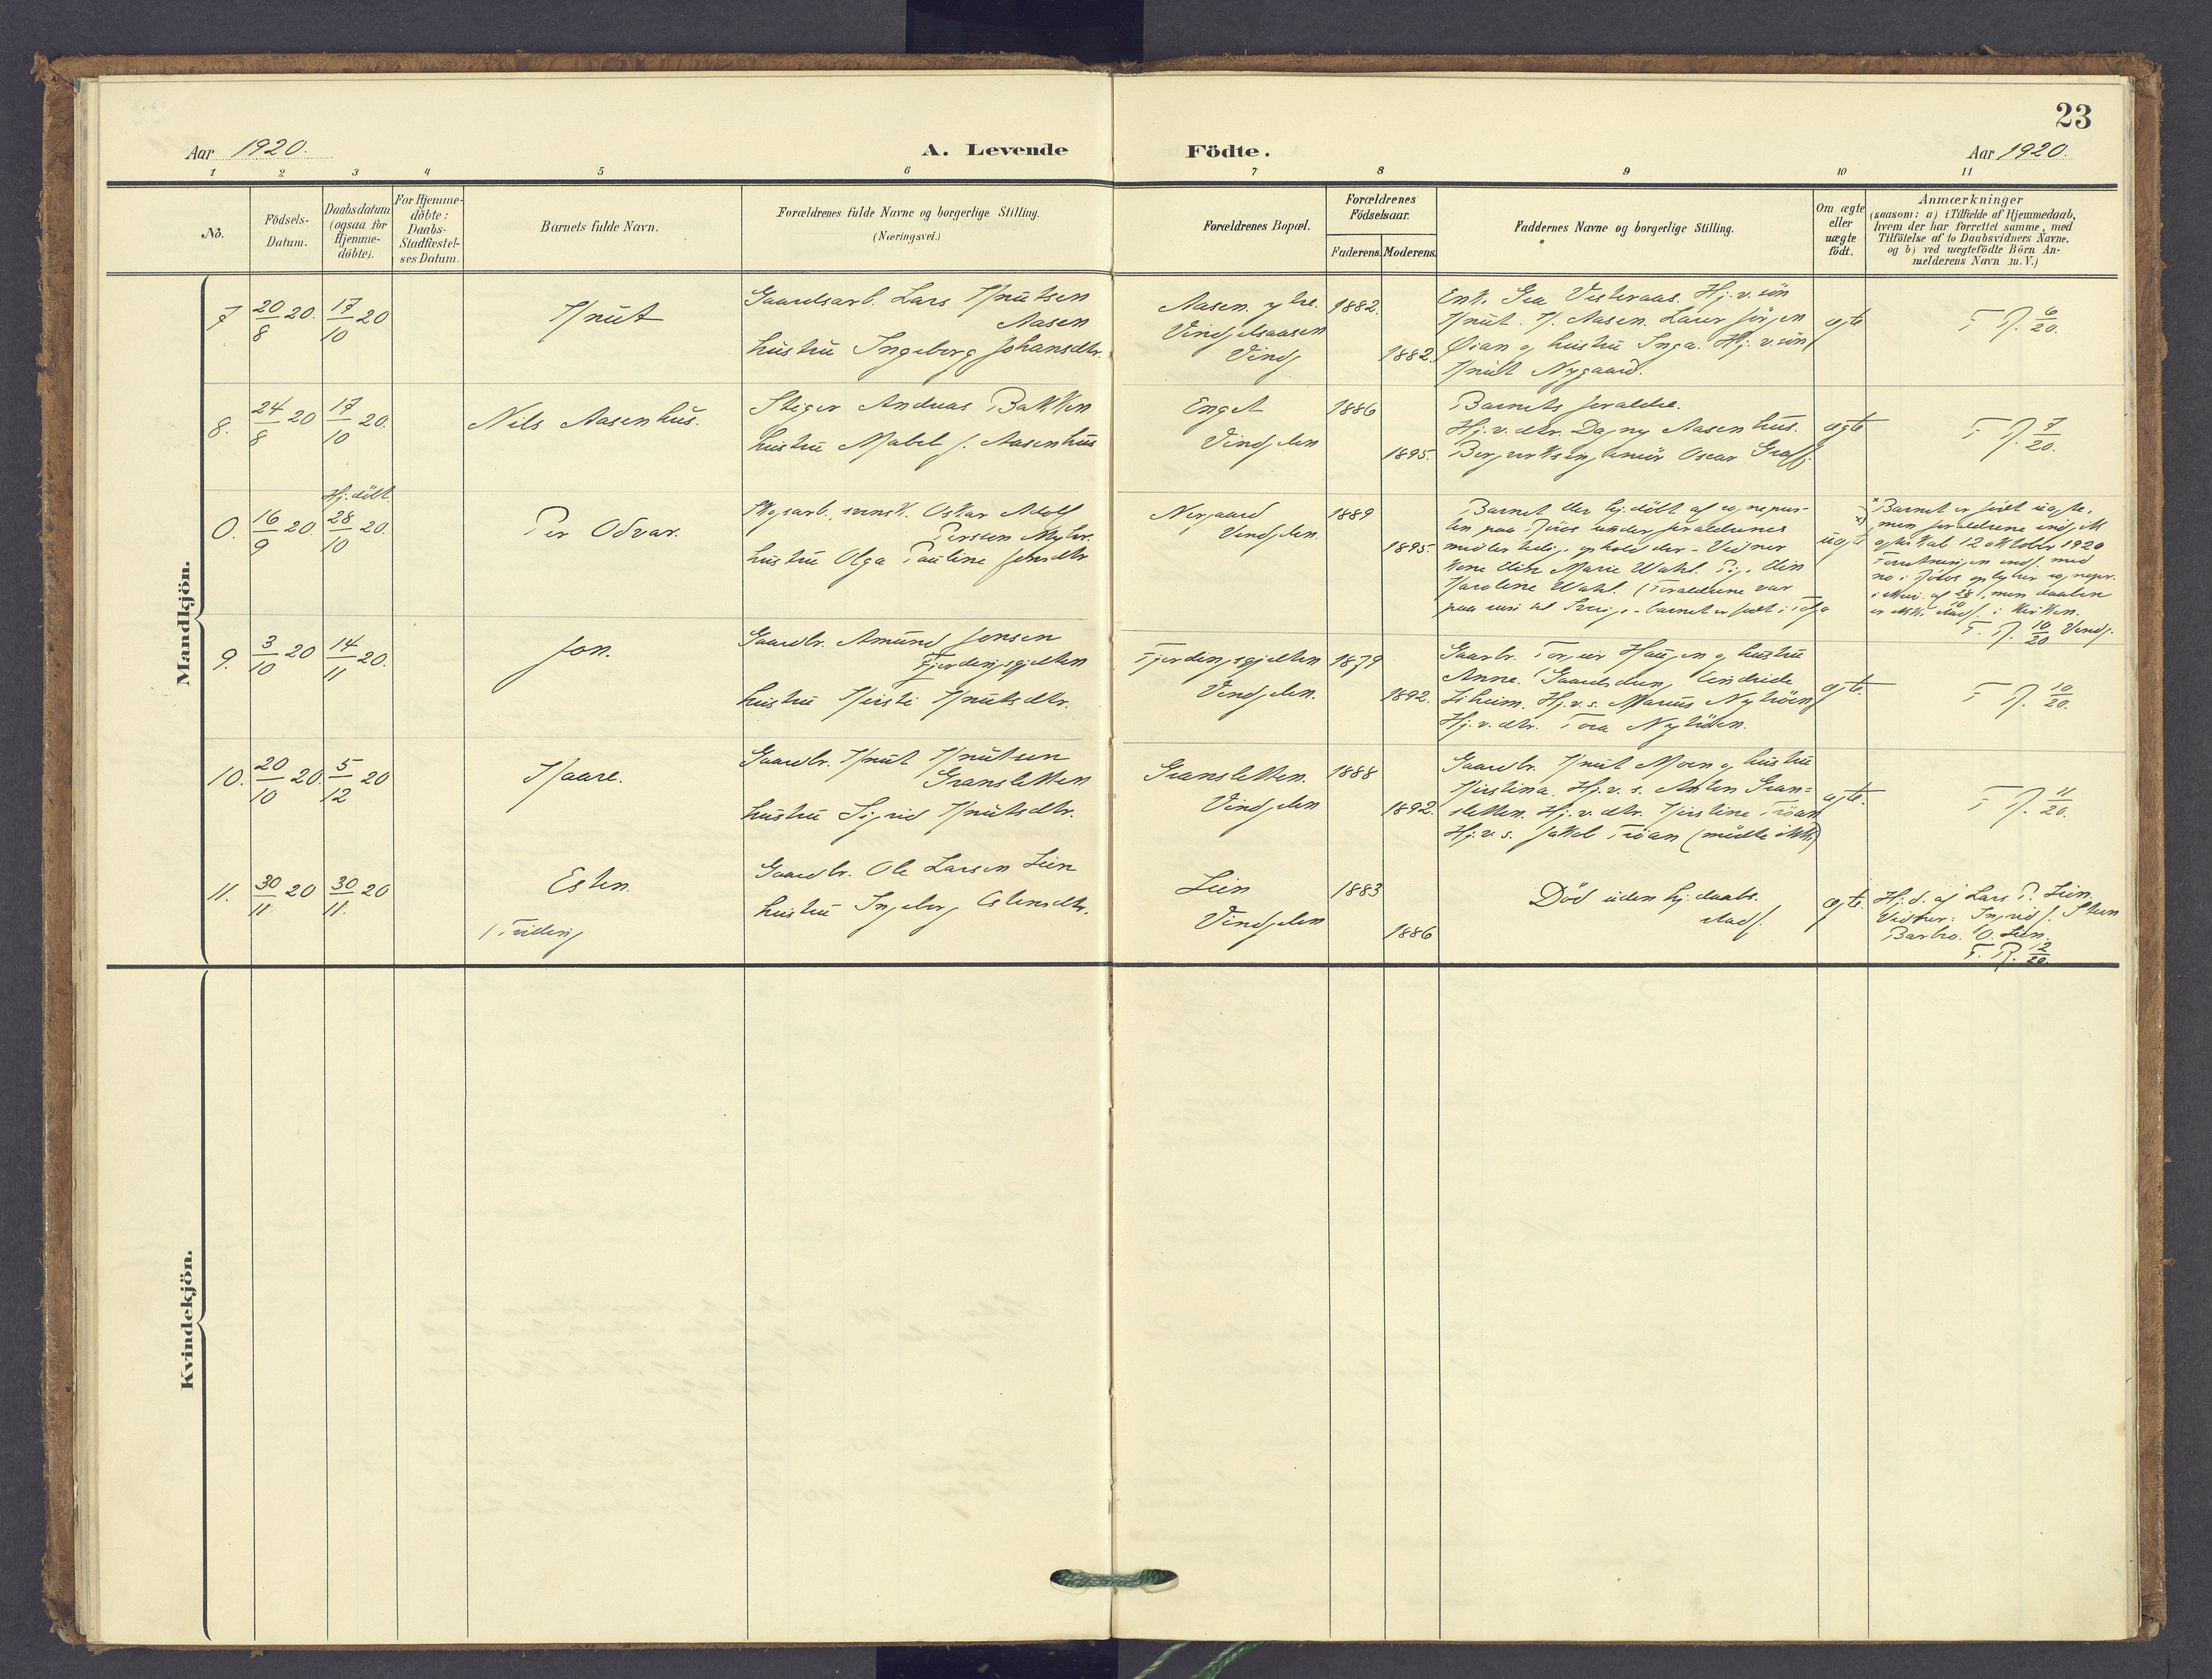 23
Aar 1920.
A. Levende Födte.
Aar 1920.
1 2 3 4 5 6 7 8 9 10 11
No.
Födsels-
Datum.
Daabsdatum
(ogsaa for
Hjemme-
döbte).
For Hjemme-
döbte:
Daabs-
Stadfæstel-
ses Datum.
Barnets fulde Navn.
Forældrenes fulde Navne og borgerlige Stilling.
(Næringsvei.)
Forældrenes Bopæl.
Forældrenes
Födselsaar.
Faderens. Moderens.
Faddernes Navne og borgerlige Stilling.
Om ægte
eller
uægte
födt.
Anmærkninger
(saasom: a) i Tilfælde af Hjemmedaab,
hvem der har forrettet samme, med
Tilföielse af to Daabsvidners Navne,
og b) ved uægtefödte Börn An-
melderens Navn m. V.)
Mandkjön.
7 20/8 20. 17/10 20
Knut
Gaardsarb. Lars Knutsen
Aasen
hustru Ingeborg Johansdtr.
Aasen ytre.
Vingelsaasen
Ving
1882.
1882.
Enk. Gea Vesteraas. Hj. v. sön
Knut K. Aasen. Lærer Jörgen
Öian og hustru Inga. Hj. v. sön
Knut Nygaard.
egte
F. R. 6/20.
8. 24/8 20 17/10 20.
Nils Aasenhus.
Stiger Andreas Bakken
hustru Mabel f. Aasenhus
Enget
Vingelen
1886
1895.
Barnets foraldre.
Hj. v. dtr. Dagny Aasenhus.
Bergverksingeniör Oscar Graff.
egte
F. R. 7/20.
0. 16/9 20. Hj. döbt 28/10 20.
Per Odvar.
Skogsarb., svensk. Oskar Adolf
Persson Myhr.
hustru Olga Pauline Jensdtr
Nergaard
Vingelen.
1889
1895.
Barnet blev hj. döbt af sogneprse-
ten paa Röros under foraldrenes
midlertidige ophold der - Vidner
Kone Elin Marie Wahl. Pige Elin
Karoline Wahl. (Foraldrene var
paa reise til Sverige - barnet er födt i
uegte
Barnet er födt uegte,
men foraldrene indgik
egteskab 12 oktober 1920
i Röros
i 28/10, men daaben
er ikke stadf. i kirken.
F. R. 10/20 Ving.
9. 3/10 20 14/11 20.
Jon.
Gaardbr. Amund Jonsen
Fjerdingsgjelten
hustru Kirsti Knutsdtr.
Fjerdingsgjelten
Vingelen.
1879
1892.
Gaarbr. Torgeir Haugen og hustru
Anne. Gaardsdreng Endride
Hj. v. s. Marius Nytröen
Hj. v. dtr. Tora Nytröen.
egte.
F. R. 10/20.
10. 20/10 20. 5/12 20
Kaare.
Gaardbr. Knut Knutsen
Gransletten
hustru Sigrid Knutsdtr.
Gransletten.
Vingelen
1888
1892.
Gaardbr. Knut Moen og hustru
Kirstina. Hj. v. s. Anten Gran=
sletten. Hj. v. dtr. Kirstine Tröan
Hj. v. s. Jakob Tröan (mödte ikke)
egte.
F. R. 11/20.
11. 30/11 20 30/11 20
Esten.
(Tvilling
Gaardbr. Ole Larsen Lien
hustru Ingeborg Estensdtr.
Lien
Vingelen
1883
1886
Död uden hj. daabs.
stadf.
egte.
Hj. d. af Lars P. Lien.
Vidner: Ingrid J. Steen
Barbro O. Lien.
F. R. 12/20.
Kvindekjön.